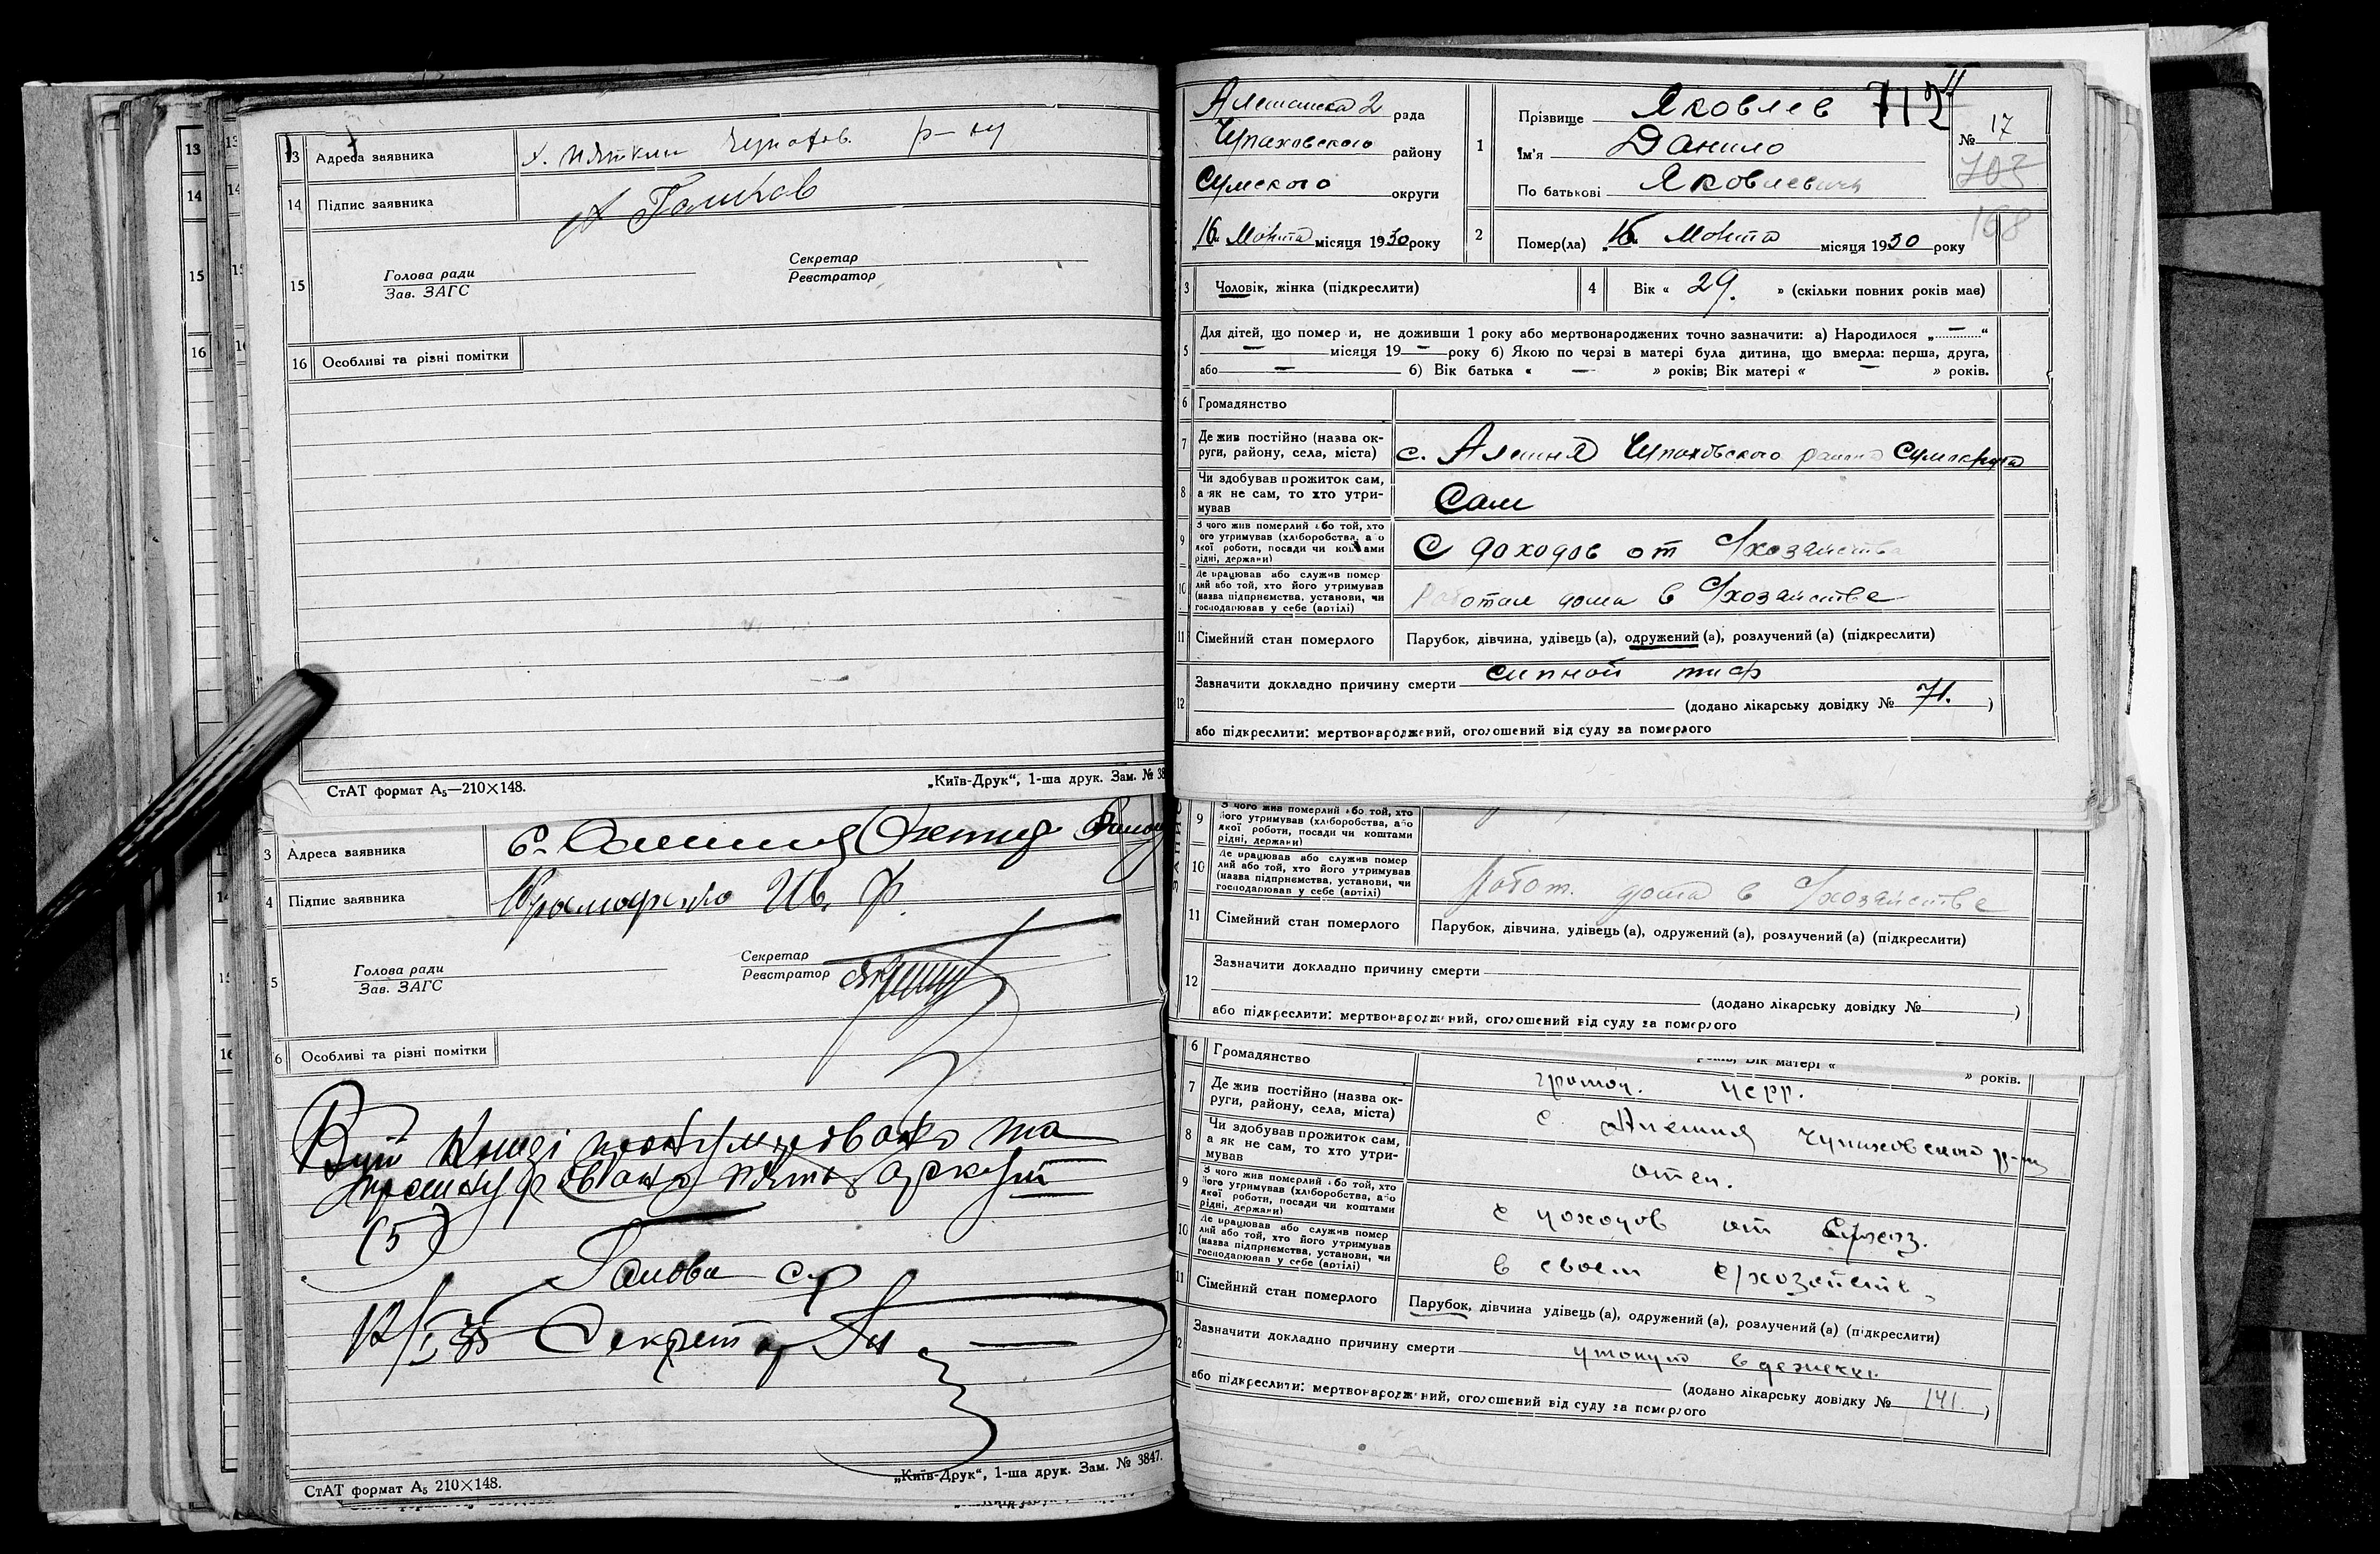 13 Адреса заявника х. Пяткин Чупахов. р-ну
14 Підпис заявника
15 Голова ради
Зав. ЗАГС
Секретар
Реєстратор
16 Особливі та різні помітки
СтАТ формат А5—210×148.
„Київ-Друк“, 1-ша друк. Зам. № 38
3 Адреса заявника с.
4 Підпис заявника Ив. Ф.
5 Голова ради
Зав. ЗАГС
Секретар
Реєстратор
6 Особливі та різні помітки
В цій книзі пронумеровано та
прошнуровано пять аркуш
(5)
Голова с/р
Секретар
СтАТ формат А5 210×148.
„Київ-Друк“, 1-ша друк. Зам. № 3847.
Алешанска 2 рада
Чупаховского району
Сумского округи
„16“ Марта місяця 1930 року
1 Прізвище Яковлев 712
Ім'я Данило
По батькові Яковлевич
№ 17
703
168
2 Помер(ла) „16“ Марта місяця 1930 року
3 Чоловік, жінка (підкреслити)
4 Вік « 29. » (скільки повних років має)
5 Для дітей, що померли, не доживши 1 року або мертвонароджених точно зазначити: а) Народилося „—“
— місяця 19— року б) Якою по черзі в матері була дитина, що вмерла: перша, друга,
або — б) Вік батька « — » років; Вік матері « — » років.
6 Громадянство
7 Де жив постійно (назва округи, району, села, міста) с. Алешня Чупаховского района Сумокруга
8 Чи здобував прожиток сам, а як не сам, то хто утримував Сам
9 З чого жив померлий або той, хто його утримував (хліборобства, або якої роботи, посади чи коштами рідні, держави) С доходов от С/хозяйства
10 Де працював або служив померлий або той, хто його утримував (назва підприємства, установи, чи господарював у себе (артілі) Работал дома в С/хозяйстве
11 Сімейний стан померлого Парубок, дівчина, удівець (а), одружений (а), розлучений (а) (підкреслити)
12 Зазначити докладно причину смерти сыпной тиф
(додано лікарську довідку № 71. )
або підкреслити: мертвонароджений, оголошений від суду за померлого
9 З чого жив померлий або той, хто його утримував (хліборобства, або якої роботи, посади чи коштами рідні, держави)
10 Де працював або служив померлий або той, хто його утримував (назва підприємства, установи, чи господарював у себе (артілі) Работ. дома в С/хозяйстве
11 Сімейний стан померлого Парубок, дівчина, удівець (а), одружений (а), розлучений (а) (підкреслити)
12 Зазначити докладно причину смерти
(додано лікарську довідку № )
або підкреслити: мертвонароджений, оголошений від суду за померлого
років; Вік матері « » років.
6 Громадянство
7 Де жив постійно (назва округи, району, села, міста) с. Алешня Чупаховского р-ну
8 Чи здобував прожиток сам, а як не сам, то хто утримував отец.
9 З чого жив померлий або той, хто його утримував (хліборобства, або якої роботи, посади чи коштами рідні, держави) с доходов от С/хоз.
10 Де працював або служив померлий або той, хто його утримував (назва підприємства, установи, чи господарював у себе (артілі) в своем с/хозяйств.
11 Сімейний стан померлого Парубок, дівчина удівець (а), одружений (а), розлучений (а) (підкреслити)
12 Зазначити докладно причину смерти утонул в
(додано лікарську довідку № 141. )
або підкреслити: мертвонароджений, оголошений від суду за померлого